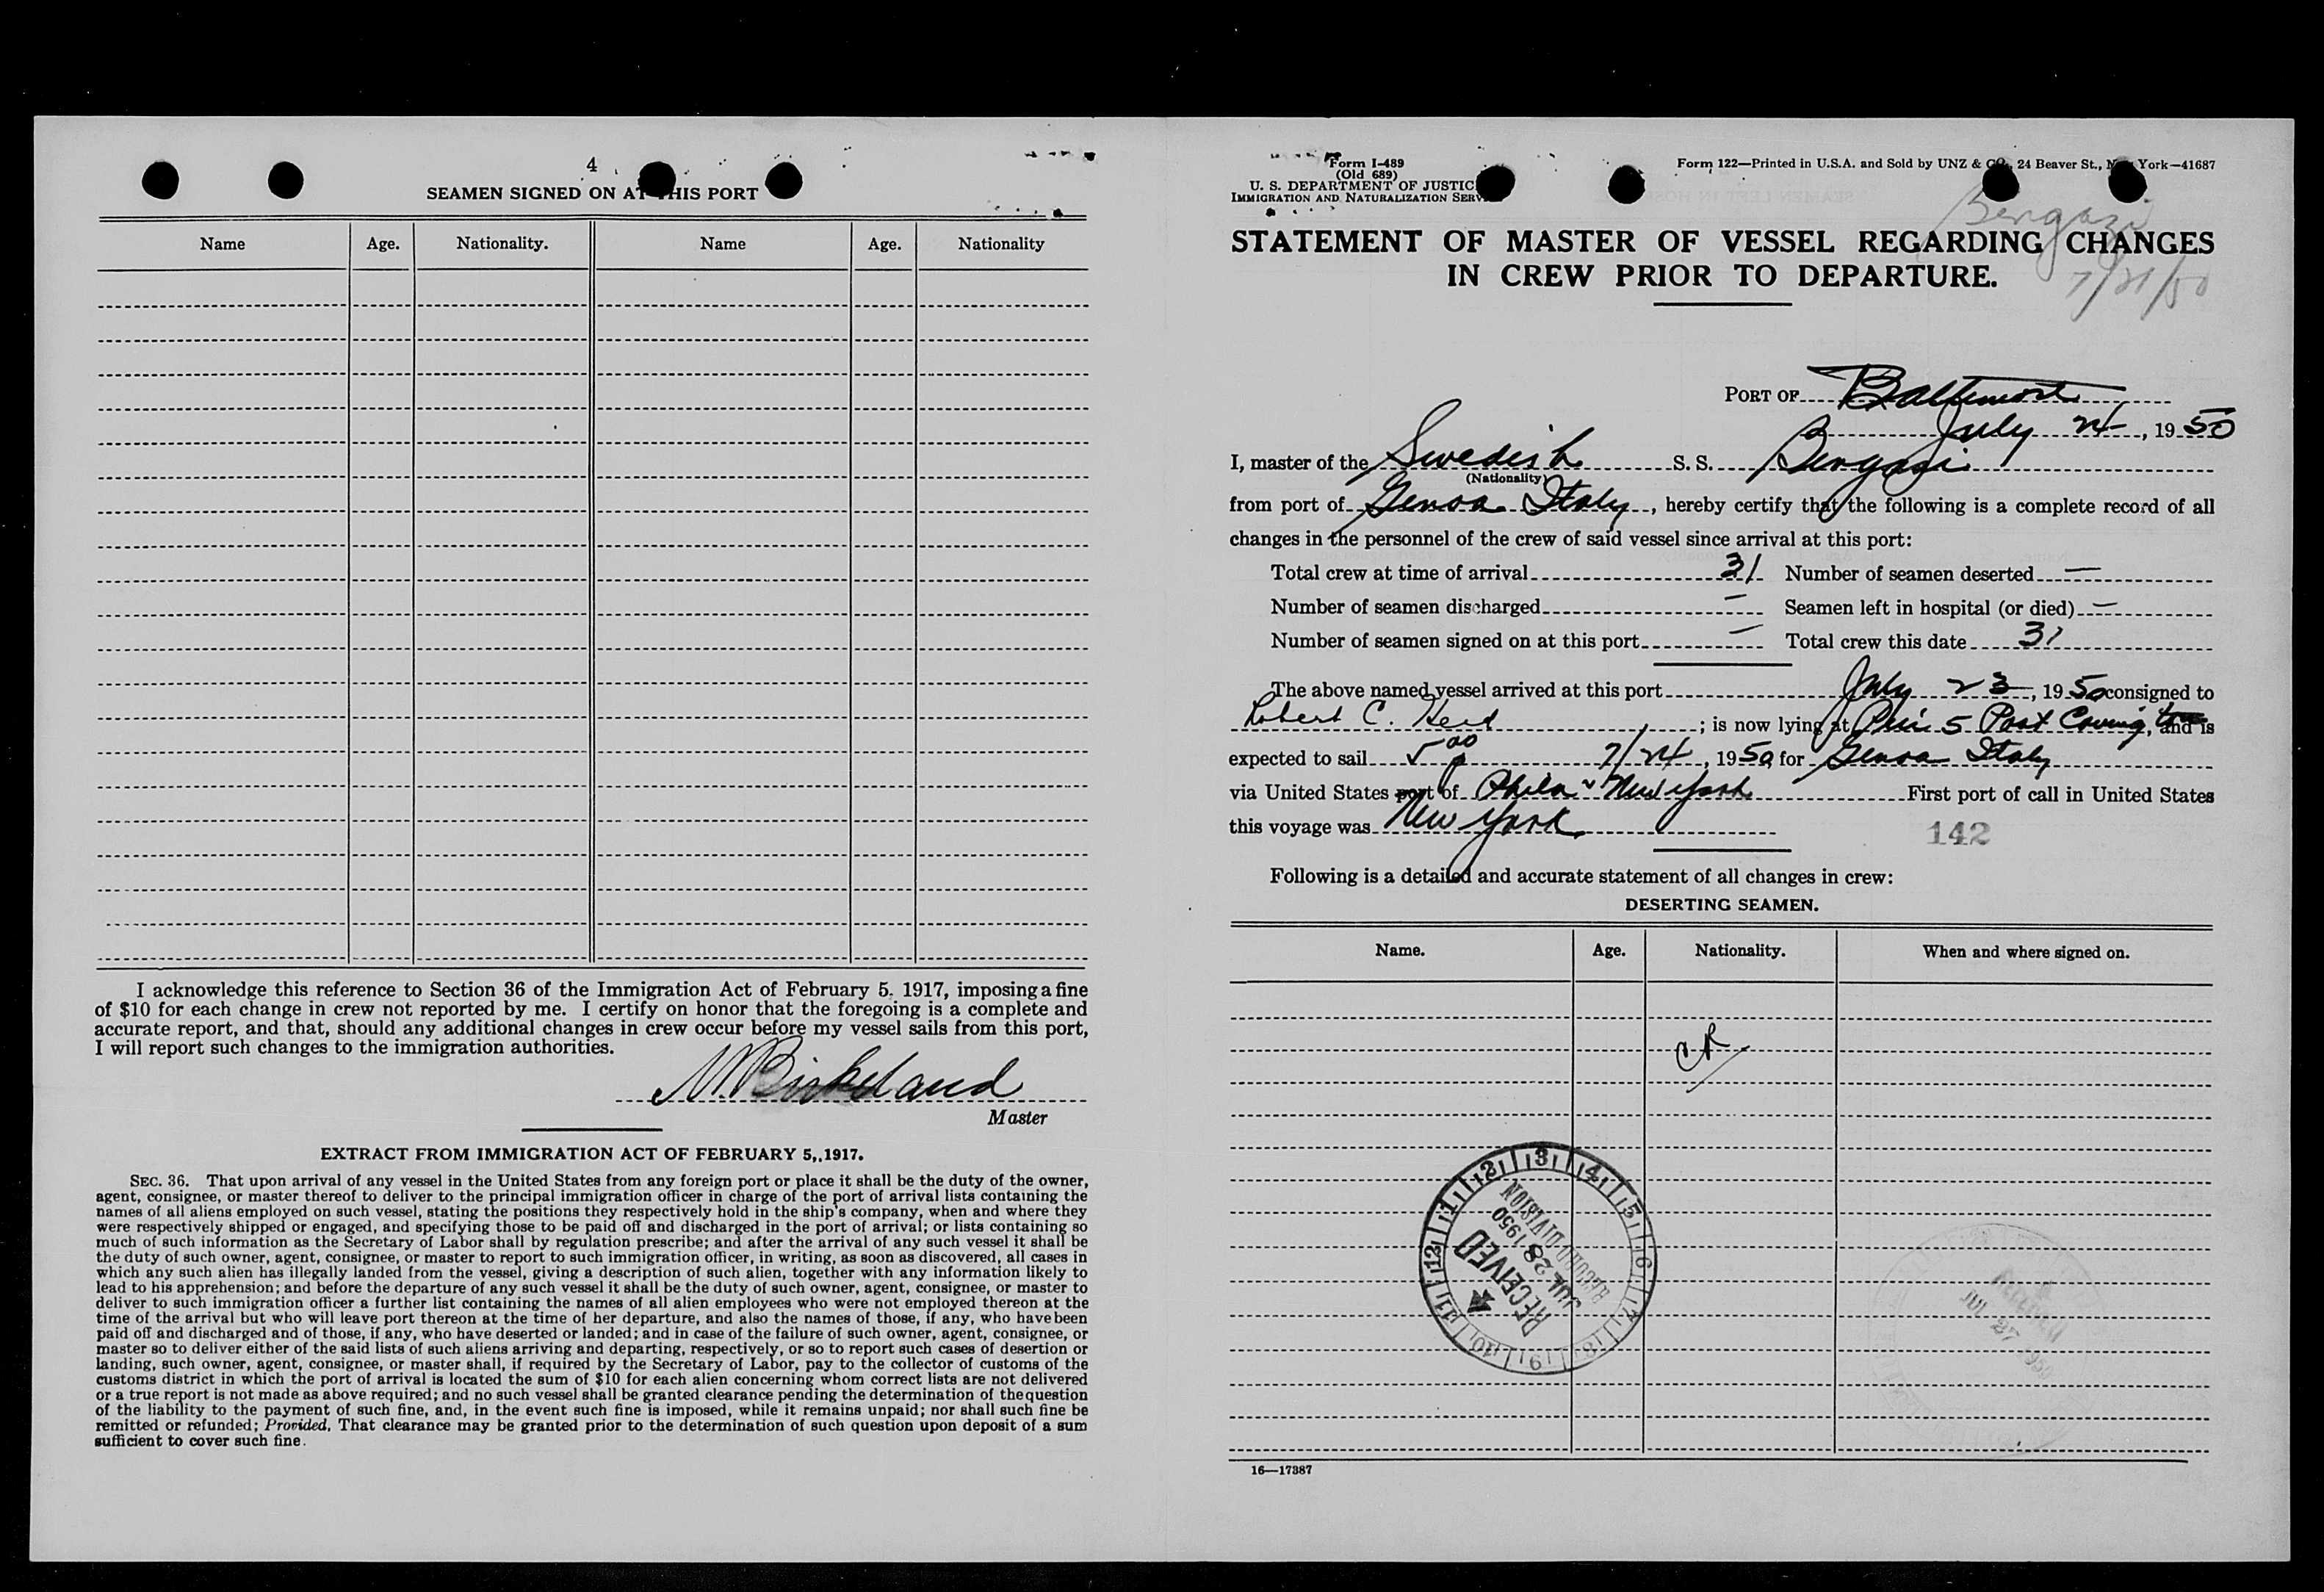 4
SEAMEN SIGNED ON AT THIS PORT
Name Age. Nationality. Name Age. Nationality
I acknowledge this reference to Section 36 of the Immigration Act of February 5, 1917, imposing a fine
of $10 for each change in crew not reported by me. I certify on honor that the foregoing is a complete and
accurate report, and that, should any additional changes in crew occur before my vessel sails from this port,
I will report such changes to the immigration authorities.
M. Birkeland
Master
EXTRACT FROM IMMIGRATION ACT OF FEBRUARY 5,.1917.
SEC. 36. That upon arrival of any vessel in the United States from any foreign port or place it shall be the duty of the owner,
agent, consignee, or master thereof to deliver to the principal immigration officer in charge of the port of arrival lists containing the
names of all aliens employed on such vessel, stating the positions they respectively hold in the ship's company, when and where they
were respectively shipped or engaged, and specifying those to be paid off and discharged in the port of arrival; or lists containing so
much of such information as the Secretary of Labor shall by regulation prescribe; and after the arrival of any such vessel it shall be
the duty of such owner, agent, consignee, or master to report to such immigration officer, in writing, as soon as discovered, all cases in
which any such alien has illegally landed from the vessel, giving a description of such alien, together with any information likely to
lead to his apprehension; and before the departure of any such vessel it shall be the duty of such owner, agent, consignee, or master to
deliver to such immigration officer a further list containing the names of all alien employees who were not employed thereon at the
time of the arrival but who will leave port thereon at the time of her departure, and also the names of those, if any, who have been
paid off and discharged and of those, if any, who have deserted or landed; and in case of the failure of such owner, agent, consignee, or
master so to deliver either of the said lists of such aliens arriving and departing, respectively, or so to report such cases of desertion or
landing, such owner, agent, consignee, or master shall, if required by the Secretary of Labor, pay to the collector of customs of the
customs district in which the port of arrival is located the sum of $10 for each alien concerning whom correct lists are not delivered
or a true report is not made as above required; and no such vessel shall be granted clearance pending the determination of the question
of the liability to the payment of such fine, and, in the event such fine is imposed, while it remains unpaid; nor shall such fine be
remitted or refunded; Provided, That clearance may be granted prior to the determination of such question upon deposit of a sum
sufficient to cover such fine.
Form I-489
(Old 689)
U. S. DEPARTMENT OF JUSTIC
IMMIGRATION AND NATURALIZATION SERV
Form 122—Printed in U.S.A. and Sold by UNZ & CO., 24 Beaver St., New York—41687
Bengazi
7/21/50
STATEMENT OF MASTER OF VESSEL REGARDING CHANGES
IN CREW PRIOR TO DEPARTURE.
PORT OF Baltimore
July 24, 1950
I, master of the Swedish S. S. Bengasi
(Nationality)
from port of Genoa Italy, hereby certify that the following is a complete record of all
changes in the personnel of the crew of said vessel since arrival at this port:
Total crew at time of arrival 31 Number of seamen deserted —
Number of seamen discharged — Seamen left in hospital (or died) —
Number of seamen signed on at this port — Total crew this date 31
The above named vessel arrived at this port July 23, 1950 consigned to
Robert C. Herd ; is now lying at Pier 5 Port Coving, and is
expected to sail 5 00 p 7/24, 1950, for Genoa Italy
via United States port of Phila & New York First port of call in United States
this voyage was New York
142
Following is a detailed and accurate statement of all changes in crew:
DESERTING SEAMEN.
Name. Age. Nationality. When and where signed on.
CR
12 1 2 3 4 5 6 7 8 9 10 11
RECEIVED
JUL 28 1950
RECORD DIVISION
RECEIVED
JUL 27 1950
16—17387